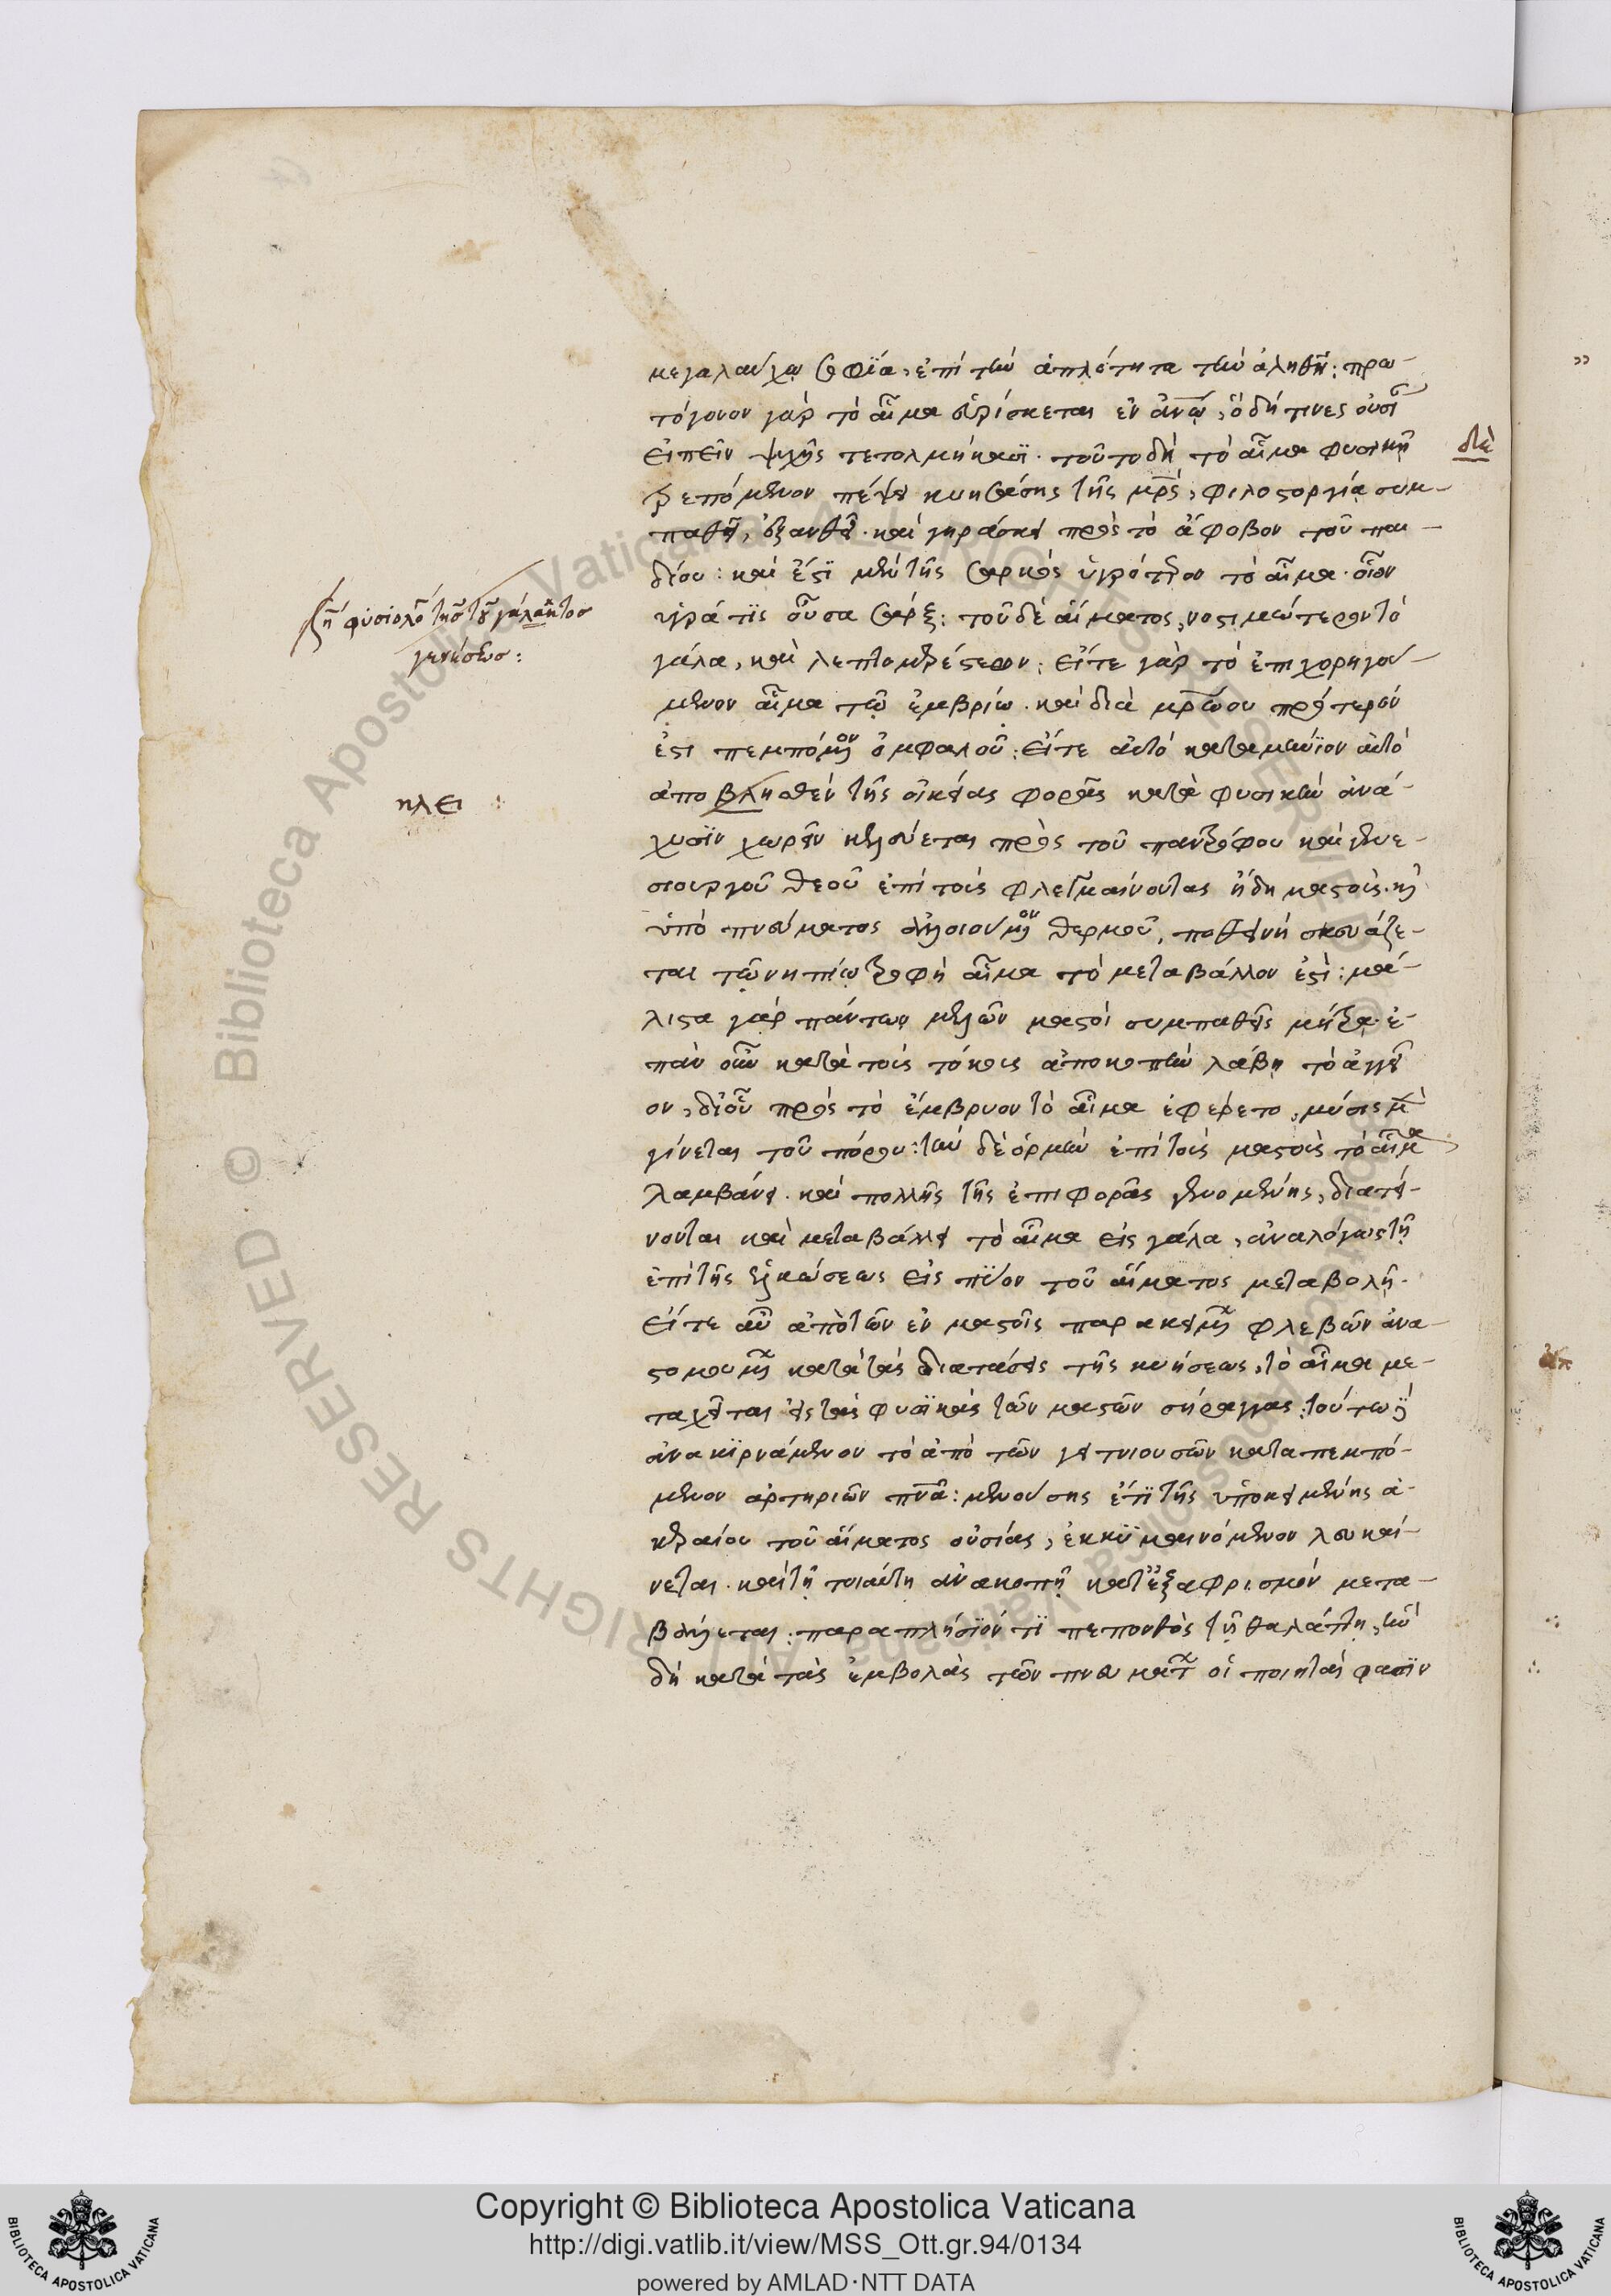 μεγαλαύχῳ σοφΐα, ἐπὶ τὴν ἁπλότητα τὴν ἀληθῆ: πρω-
τόγονον γὰρ τὸ αἷμα εὑρίσκεται ἐν ἀνῳ, ὃ δή τινες οὐσί
εἰπεῖν ψυχῆς τετολμήκασϊ. τοῦτο δὴ τὸ αἷμα φυσικῇ
τρεπόμενον πέψει κυησάσης τῆς μρς, φιλοστοργίᾳ συμ-
παθεῖ, ἐξανθεῖ. καὶ γηράσκει πρὸς τὸ ἄφοβον τοῦ παι-
δίου: καὶ ἔστϊ μὲν τῆς σαρκὸς ὑγρότερον τὸ αἷμα. οἷον
ὑγρά τϊς οὖσα σάρξ: τοῦ δὲ αἵματος, νοστιμώτερον τὸ
γάλα, καὶ λεπτομερέστερον: εἴτε γὰρ τὸ ἐπιχορηγού-
μενον αἷμα τῷ ἐμβρίῳ. καὶ διὰ μρώου πρότερον
ἐστι πεμπόμον ὀμφαλοῦ: εἴτε αὐτὸ καταμήνϊον αὐτὸ
ἀποβληθὲν τῆς οἰκείας φορᾶς κατὰ φυσικὴν ἀνά-
χυσϊν χωρεῖν κελεύεται πρὸς τοῦ παντρόφου καὶ γενε-
σιουργοῦ θεοῦ ἐπὶ τοὺς φλεγμαίνοντας ἤδη μαστούς. κ
ὑπὸ πνεύματος ἀλλοιούμον θερμοῦ, ποθεινὴ σκευάζε-
ται τῷ νηπίῳ τροφὴ αἷμα τὸ μεταβάλλον ἐστί: μά-
λιστα γὰρ πάντων μελῶν μαστοὶ συμπαθεῖς μήτρᾳ. ἐ-
πὰν οὖν κατὰ τοὺς τόκους ἀποκοπὴν λάβῃ τὸ ἀγγεῖ
ον, δι' οὗ πρὸς τὸ ἔμβρυον τὸ αἷμα ἐφέρετο, μύσις μ
γίνεται τοῦ πόρου: τὴν δὲ ὁρμὴν ἐπὶ τοὺς μαστοὺς τὸ αἷμα
λαμβάνει. καὶ πολλῆς τῆς ἐπιφορᾶς γενομένης, διατεί-
νονται καὶ μεταβάλλει τὸ αἷμα εἰς γάλα, ἀναλόγως τῇ
ἐπὶ τῆς ἑλκώσεως εἰς πῦον τοῦ αἵματος μεταβολῇ.
εἴτε αὖ ἀπὸ τῶν ἐν μαστοῖς παρακειμ φλεβῶν ἀνα-
στομουμ κατὰ τὰς διατάσεις τῆς κυήσεως, τὸ αἷμα με-
ταχεῖται εἰς τὰς φυσϊκὰς τῶν μαστῶν σήραγγας: τούτῳ
ἀνακϊρνάμενον τὸ ἀπὸ τῶν γειτνιουσῶν καταπεμπό-
μενον ἀρτηριῶν πνα: μενούσης ἔτϊ τῆς ὑποκειμένης ἀ-
κεραίου τοῦ αἵματος οὐσίας, ἐκκϋμαινόμενον λευκαί-
νεται. καὶ τῇ τοιαύτῃ ἀνακοπῇ κατ' ἐξαφρισμὸν μετα-
βάλλεται: παραπλήσϊόν τϊ πεπονθὸς τῇ θαλάττῃ, ἣν
δὴ κατὰ τὰς ἐμβολὰς τῶν πνευματ οἱ ποιηταί φασϊν
ση φυσιολο τῆς τοῦ γάλακτος
γενέσεως:
ηλει :
διὰ